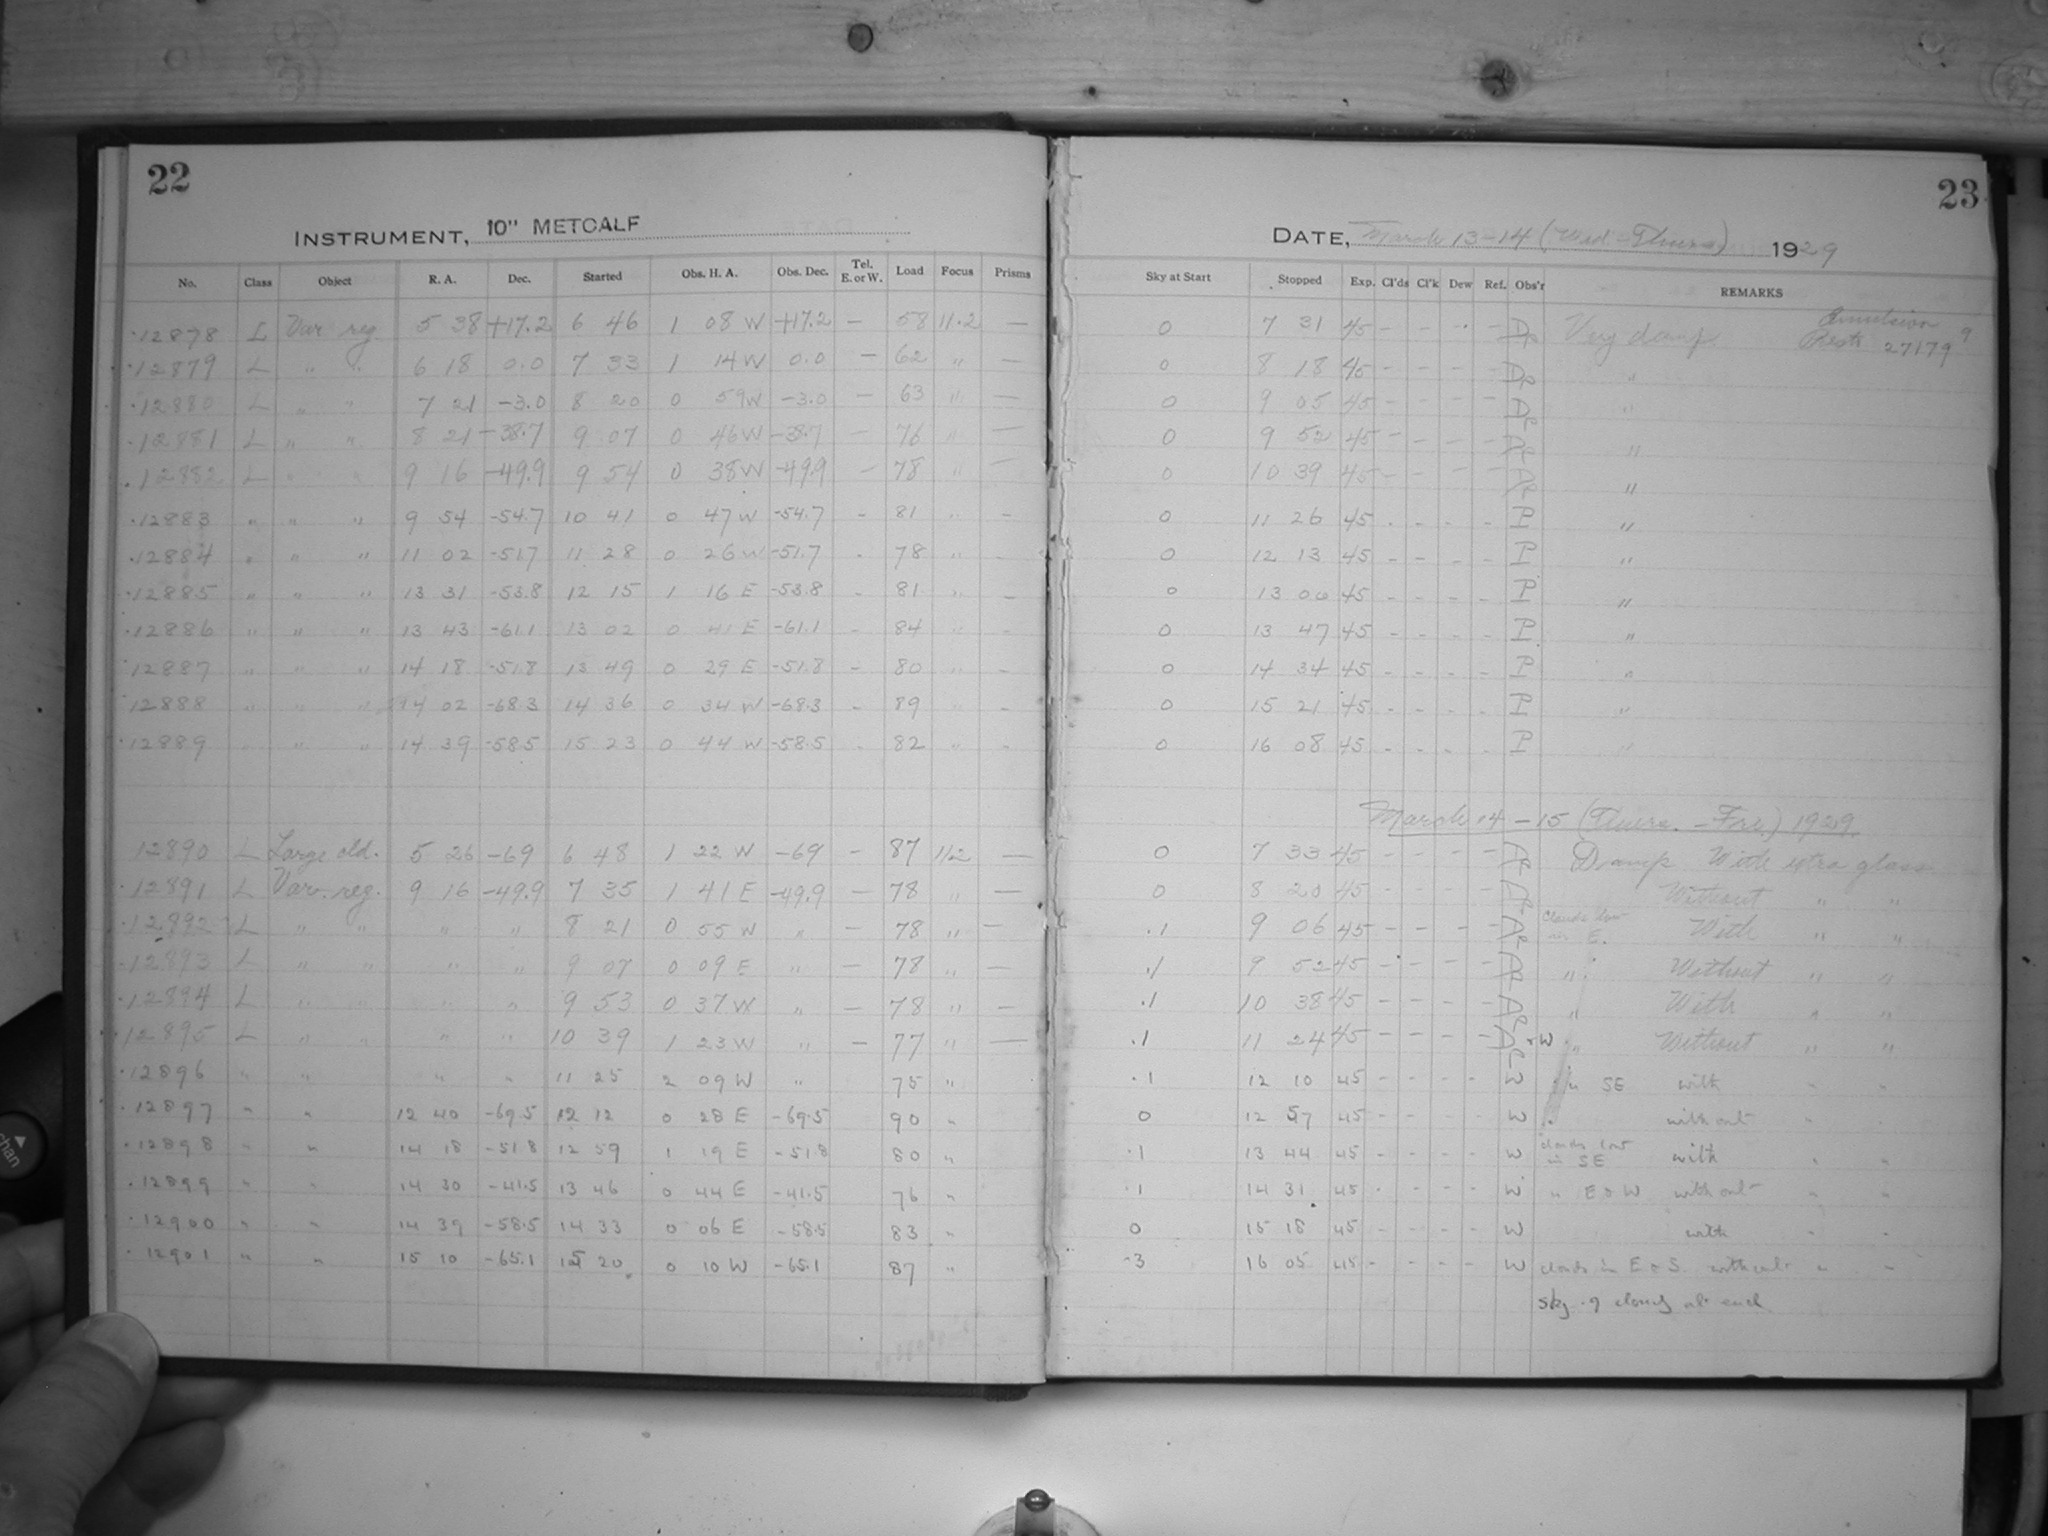 22
INSTRUMENT, 10" METCALF
No. Class Object R. A. Dec. Started Obs. H. A. Obs. Dec. Tel. E. or W. Load Focus Prisms
12878 L Var. reg. 5 38 +17.2 6 46 1 08 W +17.2 — 58 11.2 —
12879 L " " 6 18 0.0 7 33 1 14 W 0.0 — 62 " —
12880 L " " 7 21 -3.0 8 20 0 59 W -3.0 — 63 " —
12881 L " " 8 21 -38.7 9 07 0 46 W -38.7 — 76 " —
12882 L " " 9 16 -49.9 9 54 0 38 W -49.9 — 78 " —
12883 " " " 9 54 -54.7 10 41 0 47 W -54.7 - 81 " -
12884 " " " 11 02 -51.7 11 28 0 26 W -51.7 - 78 " -
12885 " " " 13 31 -53.8 12 15 1 16 E -53.8 - 81 " -
12886 " " " 13 43 -61.1 13 02 0 41 E -61.1 - 84 " -
12887 " " " 14 18 -51.8 13 49 0 29 E -51.8 - 80 " -
12888 " " " 14 02 -68.3 14 36 0 34 W -68.3 - 89 " -
12889 " " " 14 39 -58.5 15 23 0 44 W -58.5 - 82 " -
12890 L Large cld. 5 26 -69 6 48 1 22 W -69 — 87 11.2 —
12891 L Var. reg. 9 16 -49.9 7 35 1 41 E -49.9 — 78 " —
12892 L " " " " 8 21 0 55 W " — 78 " —
12893 L " " " " 9 07 0 09 E " — 78 " —
12894 L " " " " 9 53 0 37 W " — 78 " —
12895 L " " " " 10 39 1 23 W " — 77 " —
12896 " " " " 11 25 2 09 W " 75 "
12897 " " 12 40 -69.5 12 12 0 28 E -69.5 90 "
12898 " " 14 18 -51.8 12 59 1 19 E -51.8 80 "
12899 " " 14 30 -41.5 13 46 0 44 E -41.5 76 "
12900 " " 14 39 -58.5 14 33 0 06 E -58.5 83 "
12901 " " 15 10 -65.1 15 20 0 10 W -65.1 87 "
23
DATE, March 13-14 (Wed - Thurs) 1929
Sky at Start Stopped Exp. Cl'ds Cl'k Dew Ref. Obs'r REMARKS
0 7 31 45 - - - - Very damp Emulsion 27179
0 8 18 45 - - - - "
0 9 05 45 - - - - "
0 9 52 45 - - - - "
0 10 39 45 - - - - "
0 11 26 45 - - - - P "
0 12 13 45 - - - - P "
0 13 00 45 - - - - P "
0 13 47 45 - - - - P "
0 14 34 45 - - - - P "
0 15 21 45 - - - - P "
0 16 08 45 - - - - P "
March 14 - 15 (Thurs. - Fri.) 1929
0 7 33 45 - - - - Damp With extra glass
0 8 20 45 - - - - Without " "
.1 9 06 45 - - - - Clouds low in E. With " "
.1 9 52 45 - - - - " Without " "
.1 10 38 45 - - - - " With " "
.1 11 24 45 - - - - W " Without " "
.1 12 10 45 - - - - W " SE with " "
0 12 57 45 - - - - W without " "
.1 13 44 45 - - - - W clouds low in SE with " "
.1 14 31 45 - - - - W " E & W without " "
0 15 18 45 - - - - W with " "
.3 16 05 45 - - - - W clouds in E & S. without " "
Sky .9 cloudy at end